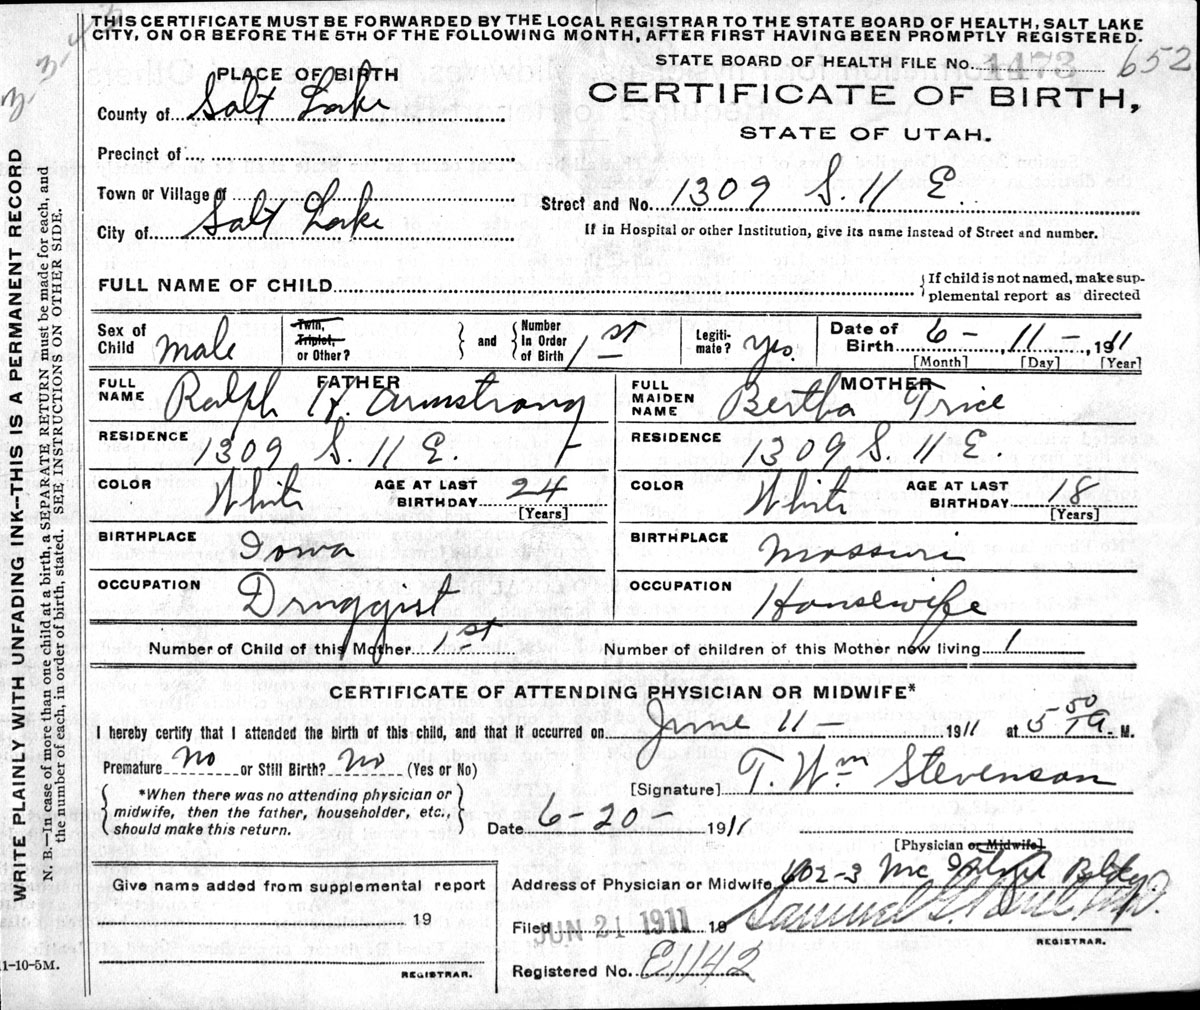 THIS CERTIFICATE MUST BE FORWARDED BY THE LOCAL REGISTRAR TO THE STATE BOARD OF HEALTH, SALT LAKE
CITY, ON OR BEFORE THE 5TH OF THE FOLLOWING MONTH, AFTER FIRST HAVING BEEN PROMPTLY REGISTERED.
STATE BOARD OF HEALTH FILE No. 1473 652
PLACE OF BIRTH
CERTIFICATE OF BIRTH,
STATE OF UTAH.
County of Salt Lake
Precinct of
Town or Village of
Street and No. 1309 S. 11 E.
City of Salt Lake
If in Hospital or other Institution, give its name instead of Street and number.
FULL NAME OF CHILD
{If child is not named, make sup-
plemental report as directed
Sex of Child male
Twin, Triplet, or Other?
} and {
Number In Order of Birth 1st
Legiti-mate? yes.
Date of Birth 6 - 11 - , 1911
[Month] [Day] [Year]
FATHER
MOTHER
FULL NAME Ralph H. Armstrong
FULL MAIDEN NAME Bertha Trice
RESIDENCE 1309 S. 11 E.
RESIDENCE 1309 S. 11 E.
COLOR White AGE AT LAST BIRTHDAY 24 [Years]
COLOR White AGE AT LAST BIRTHDAY 18 [Years]
BIRTHPLACE Iowa
BIRTHPLACE Missouri
OCCUPATION Druggist
OCCUPATION Housewife
Number of Child of this Mother 1st
Number of children of this Mother now living 1
CERTIFICATE OF ATTENDING PHYSICIAN OR MIDWIFE*
I hereby certify that I attended the birth of this child, and that it occurred on June 11 - 1911 at 5 50 A. M.
Premature No or Still Birth? No (Yes or No)
[Signature] T. Wm Stevenson
{ *When there was no attending physician or
midwife, then the father, householder, etc.,
should make this return. }
Date 6 - 20 - 1911
[Physician or Midwife]
Give name added from supplemental report
19
REGISTRAR.
Address of Physician or Midwife 402-3 Bldg
Filed JUN 21 1911 19 Samuel G.
REGISTRAR.
Registered No. E1142
WRITE PLAINLY WITH UNFADING INK—THIS IS A PERMANENT RECORD
N. B.—In case of more than one child at a birth, a SEPARATE RETURN must be made for each, and
the number of each, in order of birth, stated. SEE INSTRUCTIONS ON OTHER SIDE.
11-10-5M.